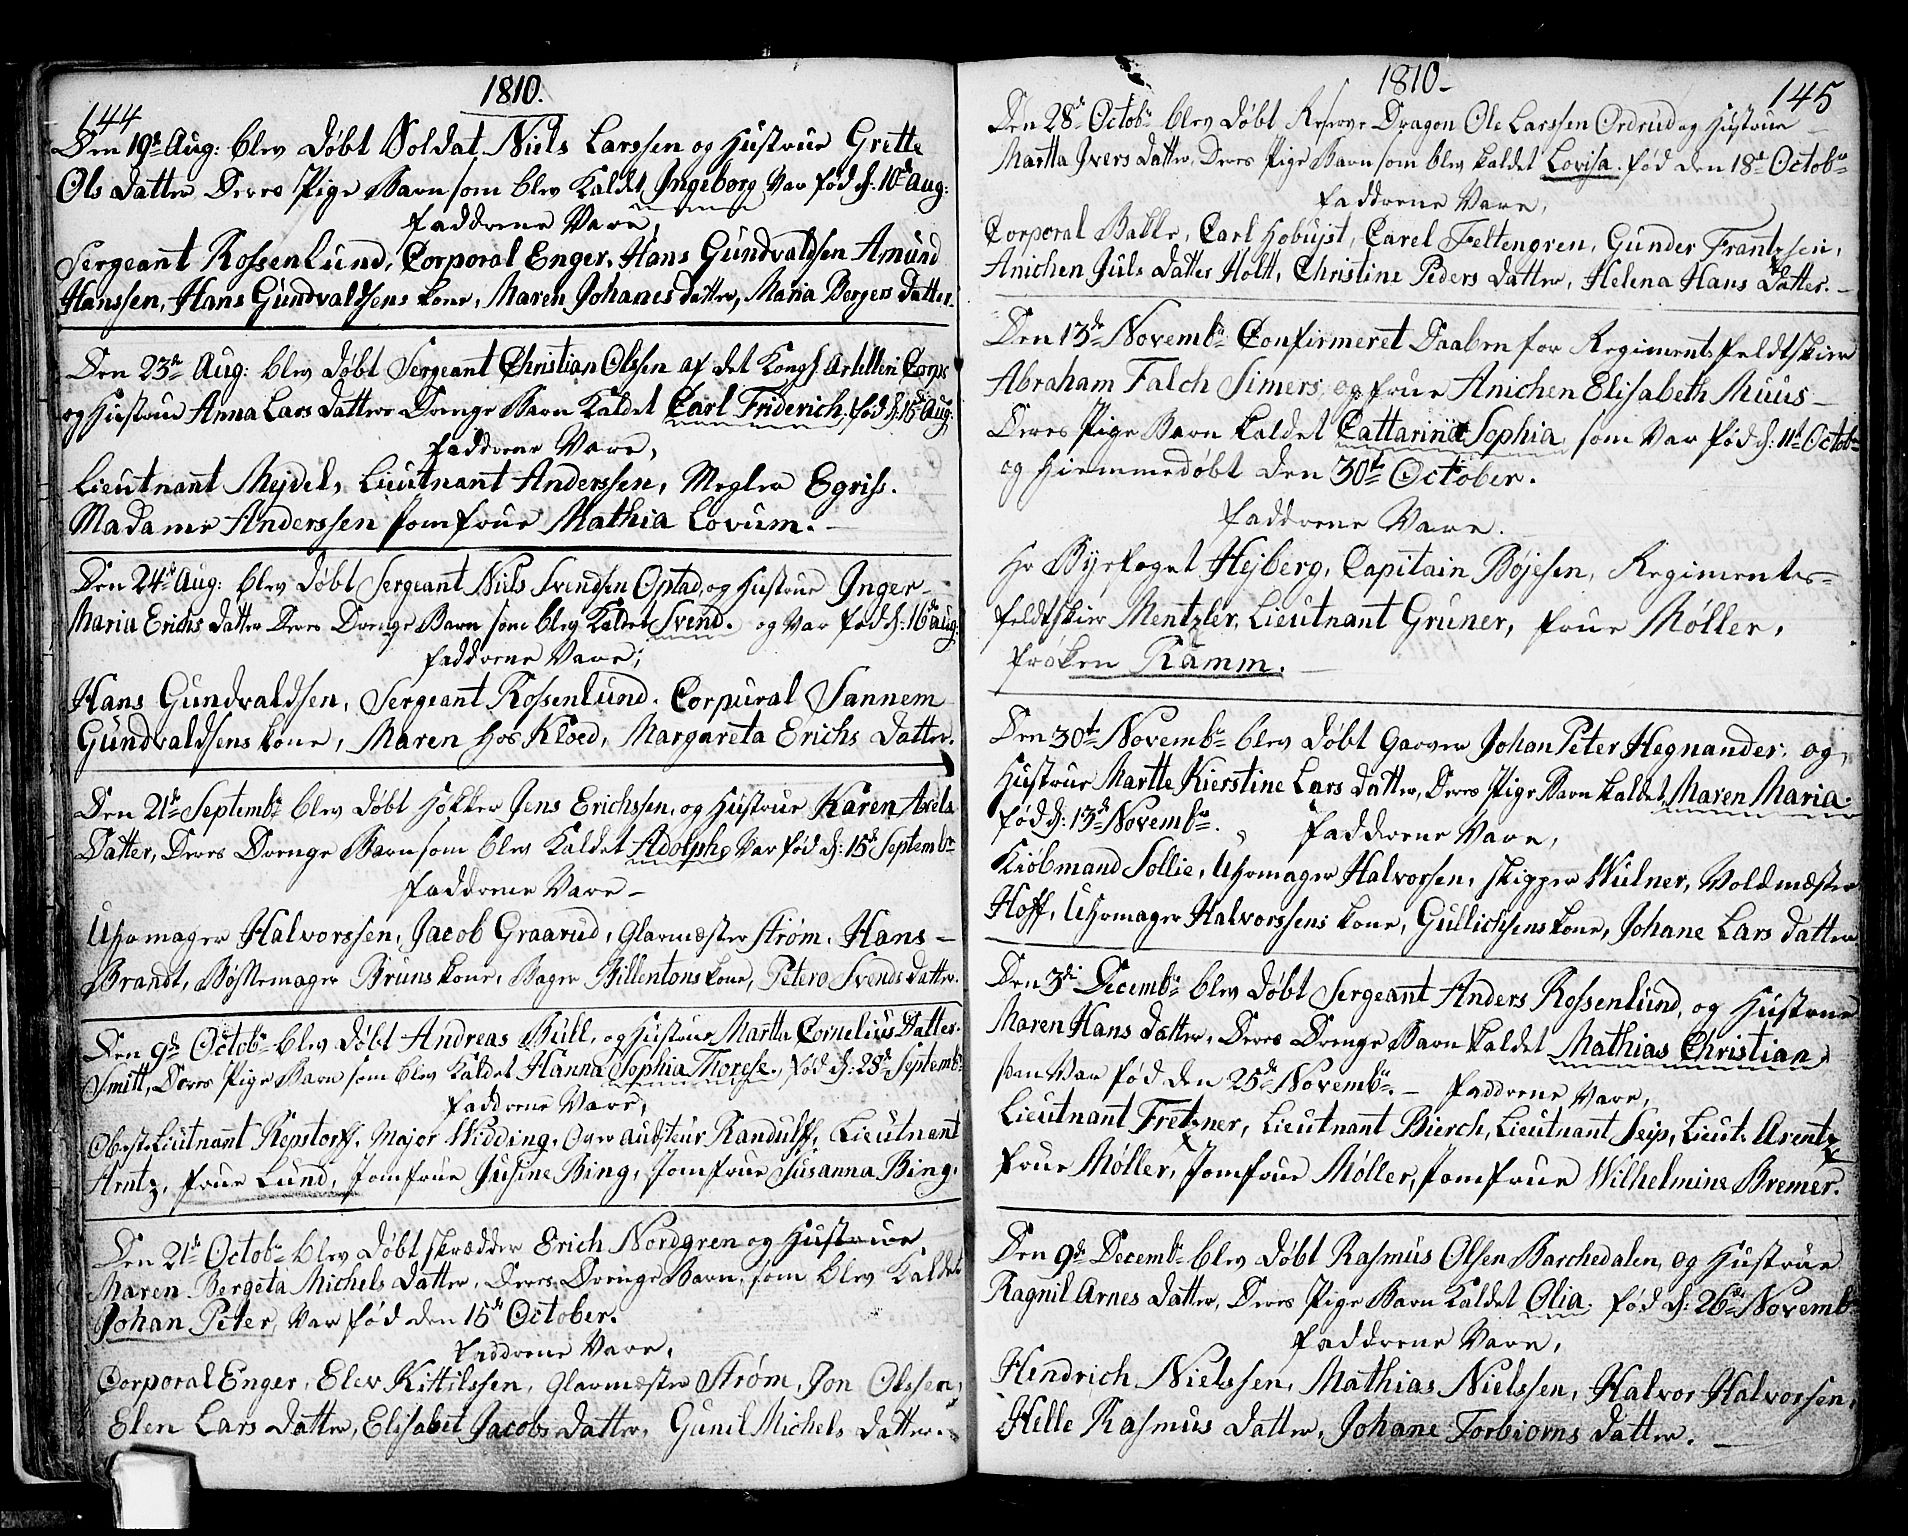 144
1810.
Den 19de Aug: blev døbt Soldat Niels Larssen og Hustrue Grette
Ols datter Deres Pige Barn som blev kaldet Ingeborg Var fød d: 10de Aug:
Fadderne Vare,
Sergeant Rossenlund, Corporal Enger, Hans Gundvaldsen Amund
Hanssen, Hans Gundvaldsens kone, Maren Johanes datter, Maria Bergers datter.
Den 23de Aug: blev døbt Sergeant Christian Olssen af det Kongs Artilleri Corps
og Hustrue Anna Lars datters Drenge Barn Kaldet Carl Friderich, fød d: 15de Aug:
Fadderne Vare,
Lieutnant Mejdel, Lieutnant Anderssen, Megler Egriss.
Madame Anderssen Jomfrue Mathia Lovum.
Den 24de Aug: blev døbt Sergeant Niels Svendsen Optad, og Hustrue Inger
Maria Erichs datter Deres Drenge Barn som blev Kaldet Svend. og Var fød d: 16de Aug:
Fadderne Vare,
Hans Gundvaldsen, Sergeant Rossenlund. Corpural Sannem
Gundvaldsens kone, Maren hos Kloed, Margareta Erichs datter.
Den 21de Septembr blev døbt Høkker Jens Erichssen, og Hustrue Karen Axels
Datter, Deres Drenge Barn som blev Kaldet Adolph, Var fød d: 15de Septembr
Fadderne Vare
Uhrmager Halvorssen, Jacob Graarud, Glarmæster Strøm, Hans
Brandt, Bøssemager Bruns kone, Bager Billentons kone, Petero Svends datter.
Den 9de Octobr blev døbt Andreas Bull, og Hustrue Martta Cornelius Datter
Smitt, Deres Pige Barn som blev Kaldet Hanna Sophia Thorese, fød d: 28de Septembr
Fadderne Vare,
Obest Lieutnannt Repstorff, Major Widding, Over Auditeur Randulff, Lieutnant
Arntz, Frue Lund, Jomfrue Jusine Bing, Jomfrue Susanna Bing.
Den 21de Octobr blev døbt Skrædder Erich Nordgren og Hustrue
Maren Bergeta Michels datter, Deres Drenge Barn, som blev Kaldet
Johan Peter, Var fød den 15de October.
Fadderne Vare,
Corporal Enger, Elev Kittilssen, Glarmæster Strøm, Jon Olssen,
Elen Lars datter, Elisabet Jacobs datter, Gunil Michels datter.
1810
145
Den 28de Octobr blev døbt Reserve Dragon Ole Larssen Ordrud og Hustrue
Martta Ivers datter, Deres Pige Barn som blev kaldet Lovisa. fød den 18de Octobr
Fadderne Vare,
Corporal Balle, Carl Hobujst, Carel Feltengren, Gunder Frantzsen,
Anichen Juls datter Holt, Christine Peders datter, Helena Hans Datter.
Den 13de Novembr Confirmeret Daaben for Regiments Feldtskier
Abraham Falch Simers, og frue Anichen Elisabeth Muus
Deres Pige Barn kaldet Cattarina Sophia som Var fød d: 11te Octobr
og Hiemmedøbt den 30te October.
Fadderne Vare.
Hr Byefoget Hejberg, Capitain Bøjesen, Regiments
feldtskier Mentzler, Lieutnant Gruner, Frue Møller,
Frøken Ramm.
Den 30te Novembr blev døbt Garver Johan Peter Hegnander, og
Hustrue Martte Kierstine Lars datter, Deres Pige Barn kaldet Maren Maria
fød d: 13de Novembr. Fadderne Vare,
Kiøbmand Sollie, Uhrmager Halvorssen, Skipper Wulner, Voldmæster
Hoff, Uhrmager Halvorssens kone, Gullichsens kone, Johane Lars datter
Den 3die Decembr blev døbt Sergeant Anders Rossenlund, og Hustrue
Maren Hans datter, Deres Drenge Barn kaldet Mathias Christian,
som Var fød den 25de Novembr. Fadderne Vare,
Lieutnant Fretzner, Lieutnant Bierch, Lieutnant Seip, Lieut. Arentz
Frue Møller, Jomfrue Møller, Jomfrue Wilhelmine Bremer.
Den 9de Decembr blev døbt Rasmus Olsen Barchedalen, og Hustrue
Ragnil Arnes datter, Deres Pige Barn Kaldet Olia. fød d: 26de Novembr
Fadderne Vare,
Hendrich Nielssen, Mathias Nielssen, Halvor Halvorsen,
Helle Rasmus datter, Johane Torbiorns datter.